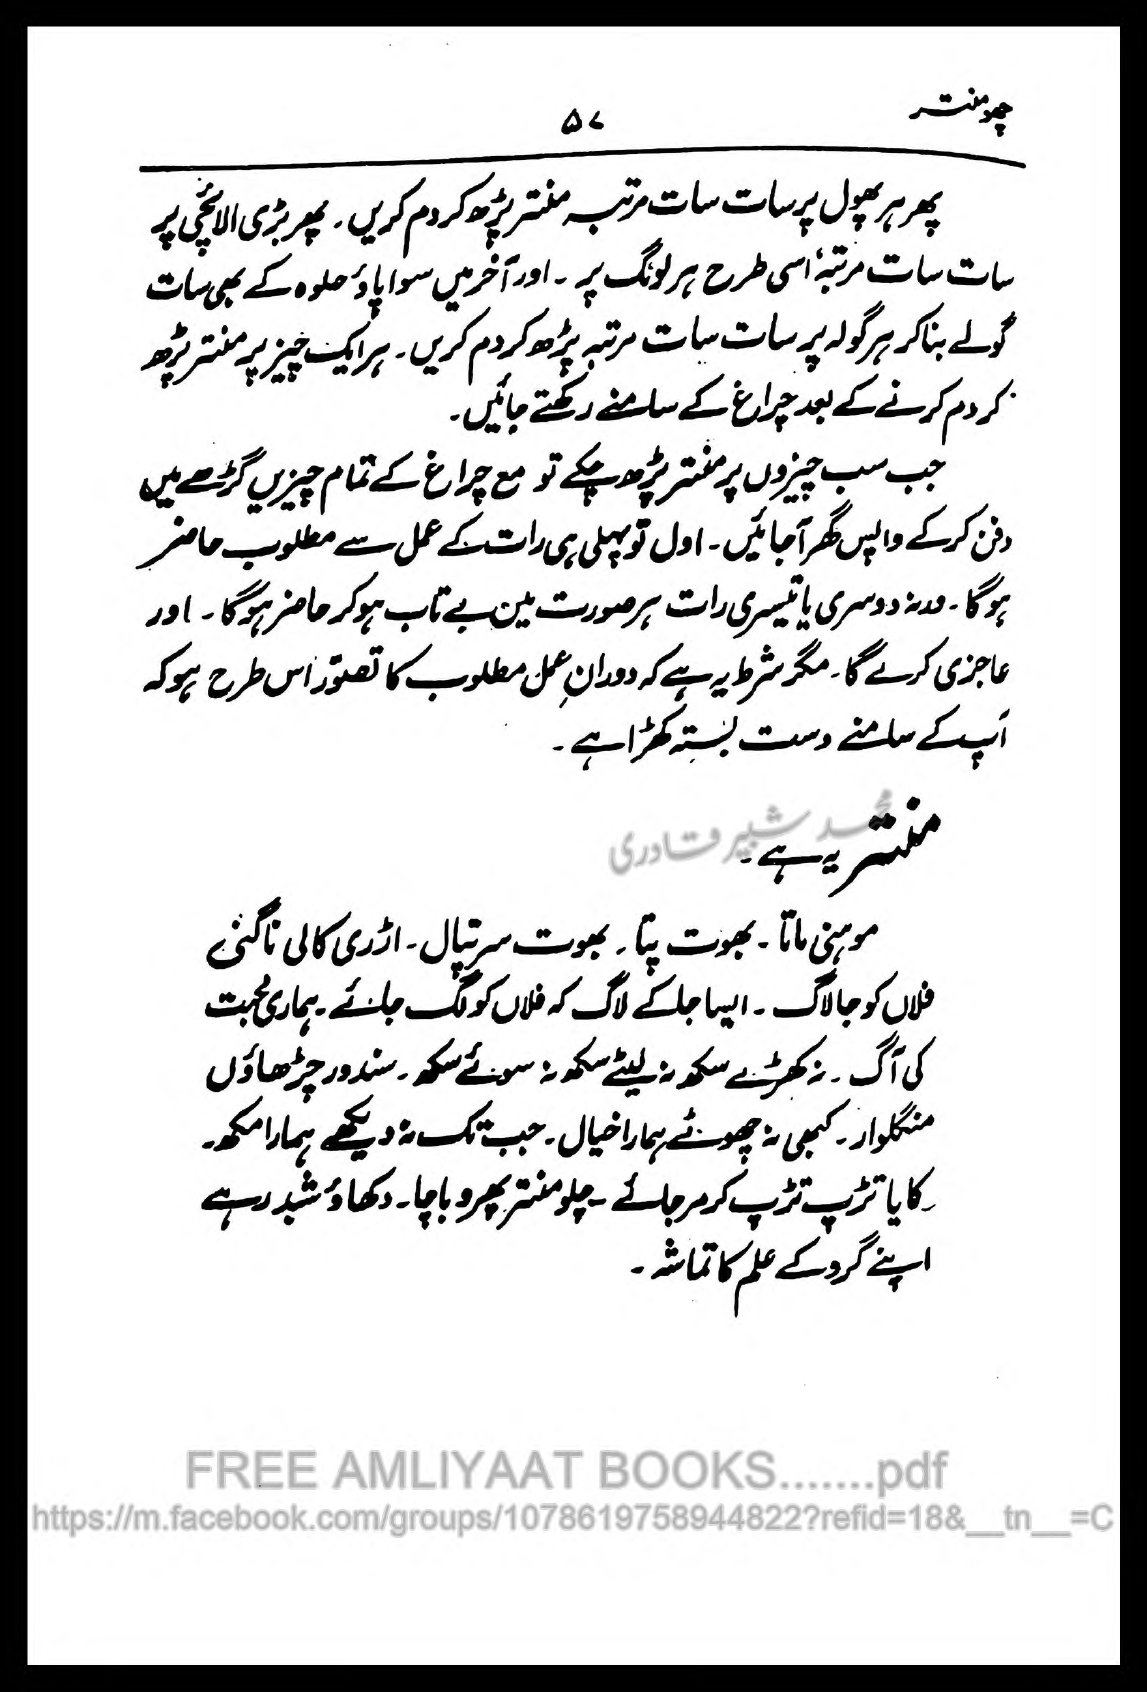 چھو منتر
۵۷
پھر ہر پھول پر سات سات مرتبہ منتر پڑھ کر دم کریں۔ پھر بڑی الائچی پر
سات سات مرتبہ اسی طرح ہر لونگ پر۔ اور آخر میں سوا پاؤ حلوہ کے بھی سات
گولے بنا کر ہر گولہ پر سات سات مرتبہ پڑھ کر دم کریں۔ ہر ایک چیز پر منتر پڑھ
کر دم کرنے کے بعد چراغ کے سامنے رکھتے جائیں۔
جب سب چیزوں پر منتر پڑھ چکے تو مع چراغ کے تمام چیزیں گڑھے میں
دفن کر کے واپس گھر آجائیں۔ اول تو پہلی ہی رات کے عمل سے مطلوب حاضر
ہوگا۔ ورنہ دوسری یا تیسری رات ہر صورت مین بے تاب ہو کر حاضر ہوگا۔ اور
عاجزی کرے گا۔ مگر شرط یہ ہے کہ دورانِ عمل مطلوب کا تصوّر اس طرح ہو کہ
آپ کے سامنے دست بستہ کھڑا ہے۔
محمد شبیر قادری
منتر یہ ہے۔
موہنی ماتا۔ بھوت پتا۔ بھوت سر تپال۔ اڑری کالی ناگنی
فلاں کو جا لاگ۔ ایسا جا کے لاگ کہ فلاں کو لگ جائے۔ ہماری محبت
کی آگ۔ نہ کھڑے سکھ نہ لیٹے سکھ نہ سوئے سکھ۔ سندور چڑھاؤں
منگلوار۔ کبھی نہ چھوٹے ہمارا خیال۔ جب تک نہ دیکھے ہمارا مکھ۔
کایا تڑپ تڑپ کر مر جائے۔ چلو منتر پھرو باچا۔ دکھاؤ شبد رہے
اپنے گرو کے علم کا تماشہ۔
FREE AMLIYAAT BOOKS.......pdf
https://m.facebook.com/groups/1078619758944822?refid=18&__tn__=C